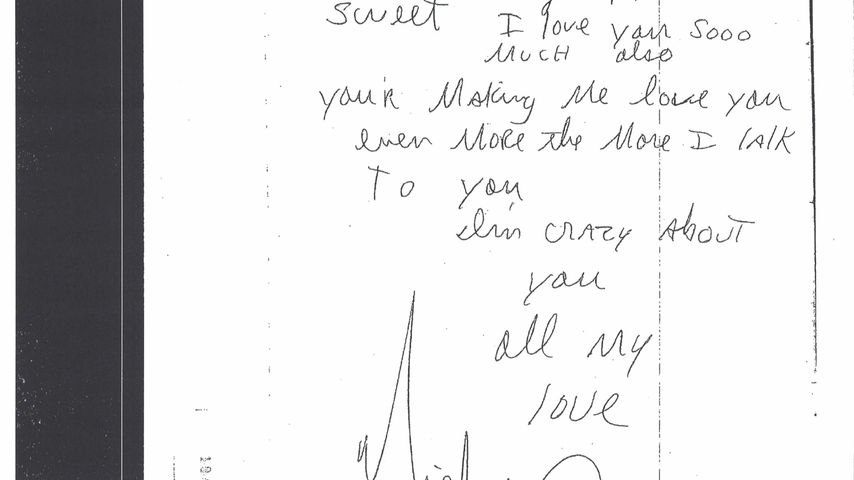 sweet I love you sooo
much also
you'r Making Me love you
even More the More I talk
To you
I'm CRAZY About
you
all my
love